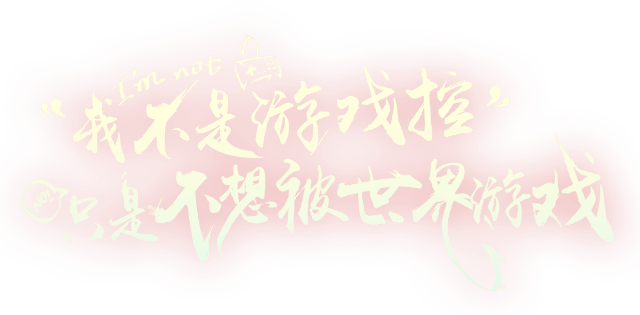 I'm not
“我不是游戏控”
只是不想被世界游戏